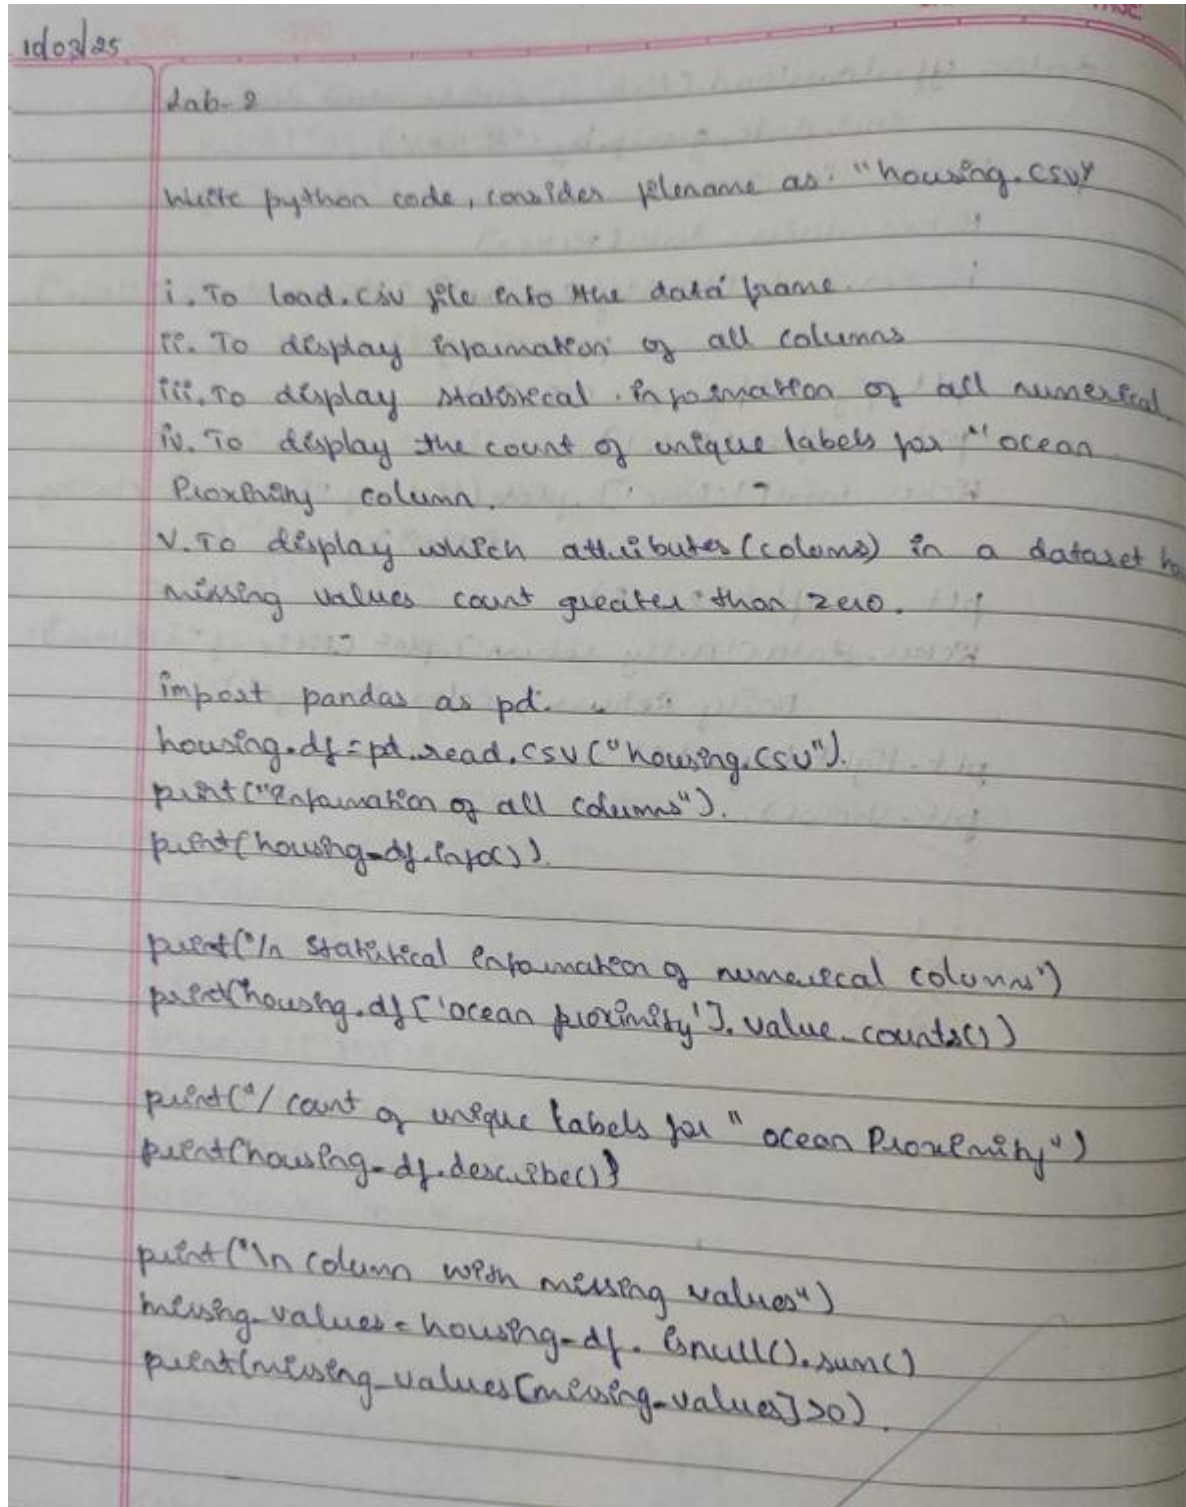 10/03/25
Lab-2
Write python code, consider filename as "housing.csv"
i. To load.csv file into the data frame.
ii. To display information of all columns
iii. To display statistical information of all numerical
iv. To display the count of unique labels for "ocean
Proximity column.
v. To display which attributes (coloms) in a dataset ha
missing values count greater than zero.
import pandas as pd.
housing.df=pd.read.csv("housing.csv").
print("Information of all columns").
print(housing_df.info()).
print("/n statistical information of numerical columns")
print(housing.df['ocean proximity'].value_counts())
print("/ count of unique labels for " ocean Proximity")
print(housing_df.describe())
print("\n column with missing values")
missing_values=housing_df.isnull().sum()
print(missing_values[missing_values]>0).